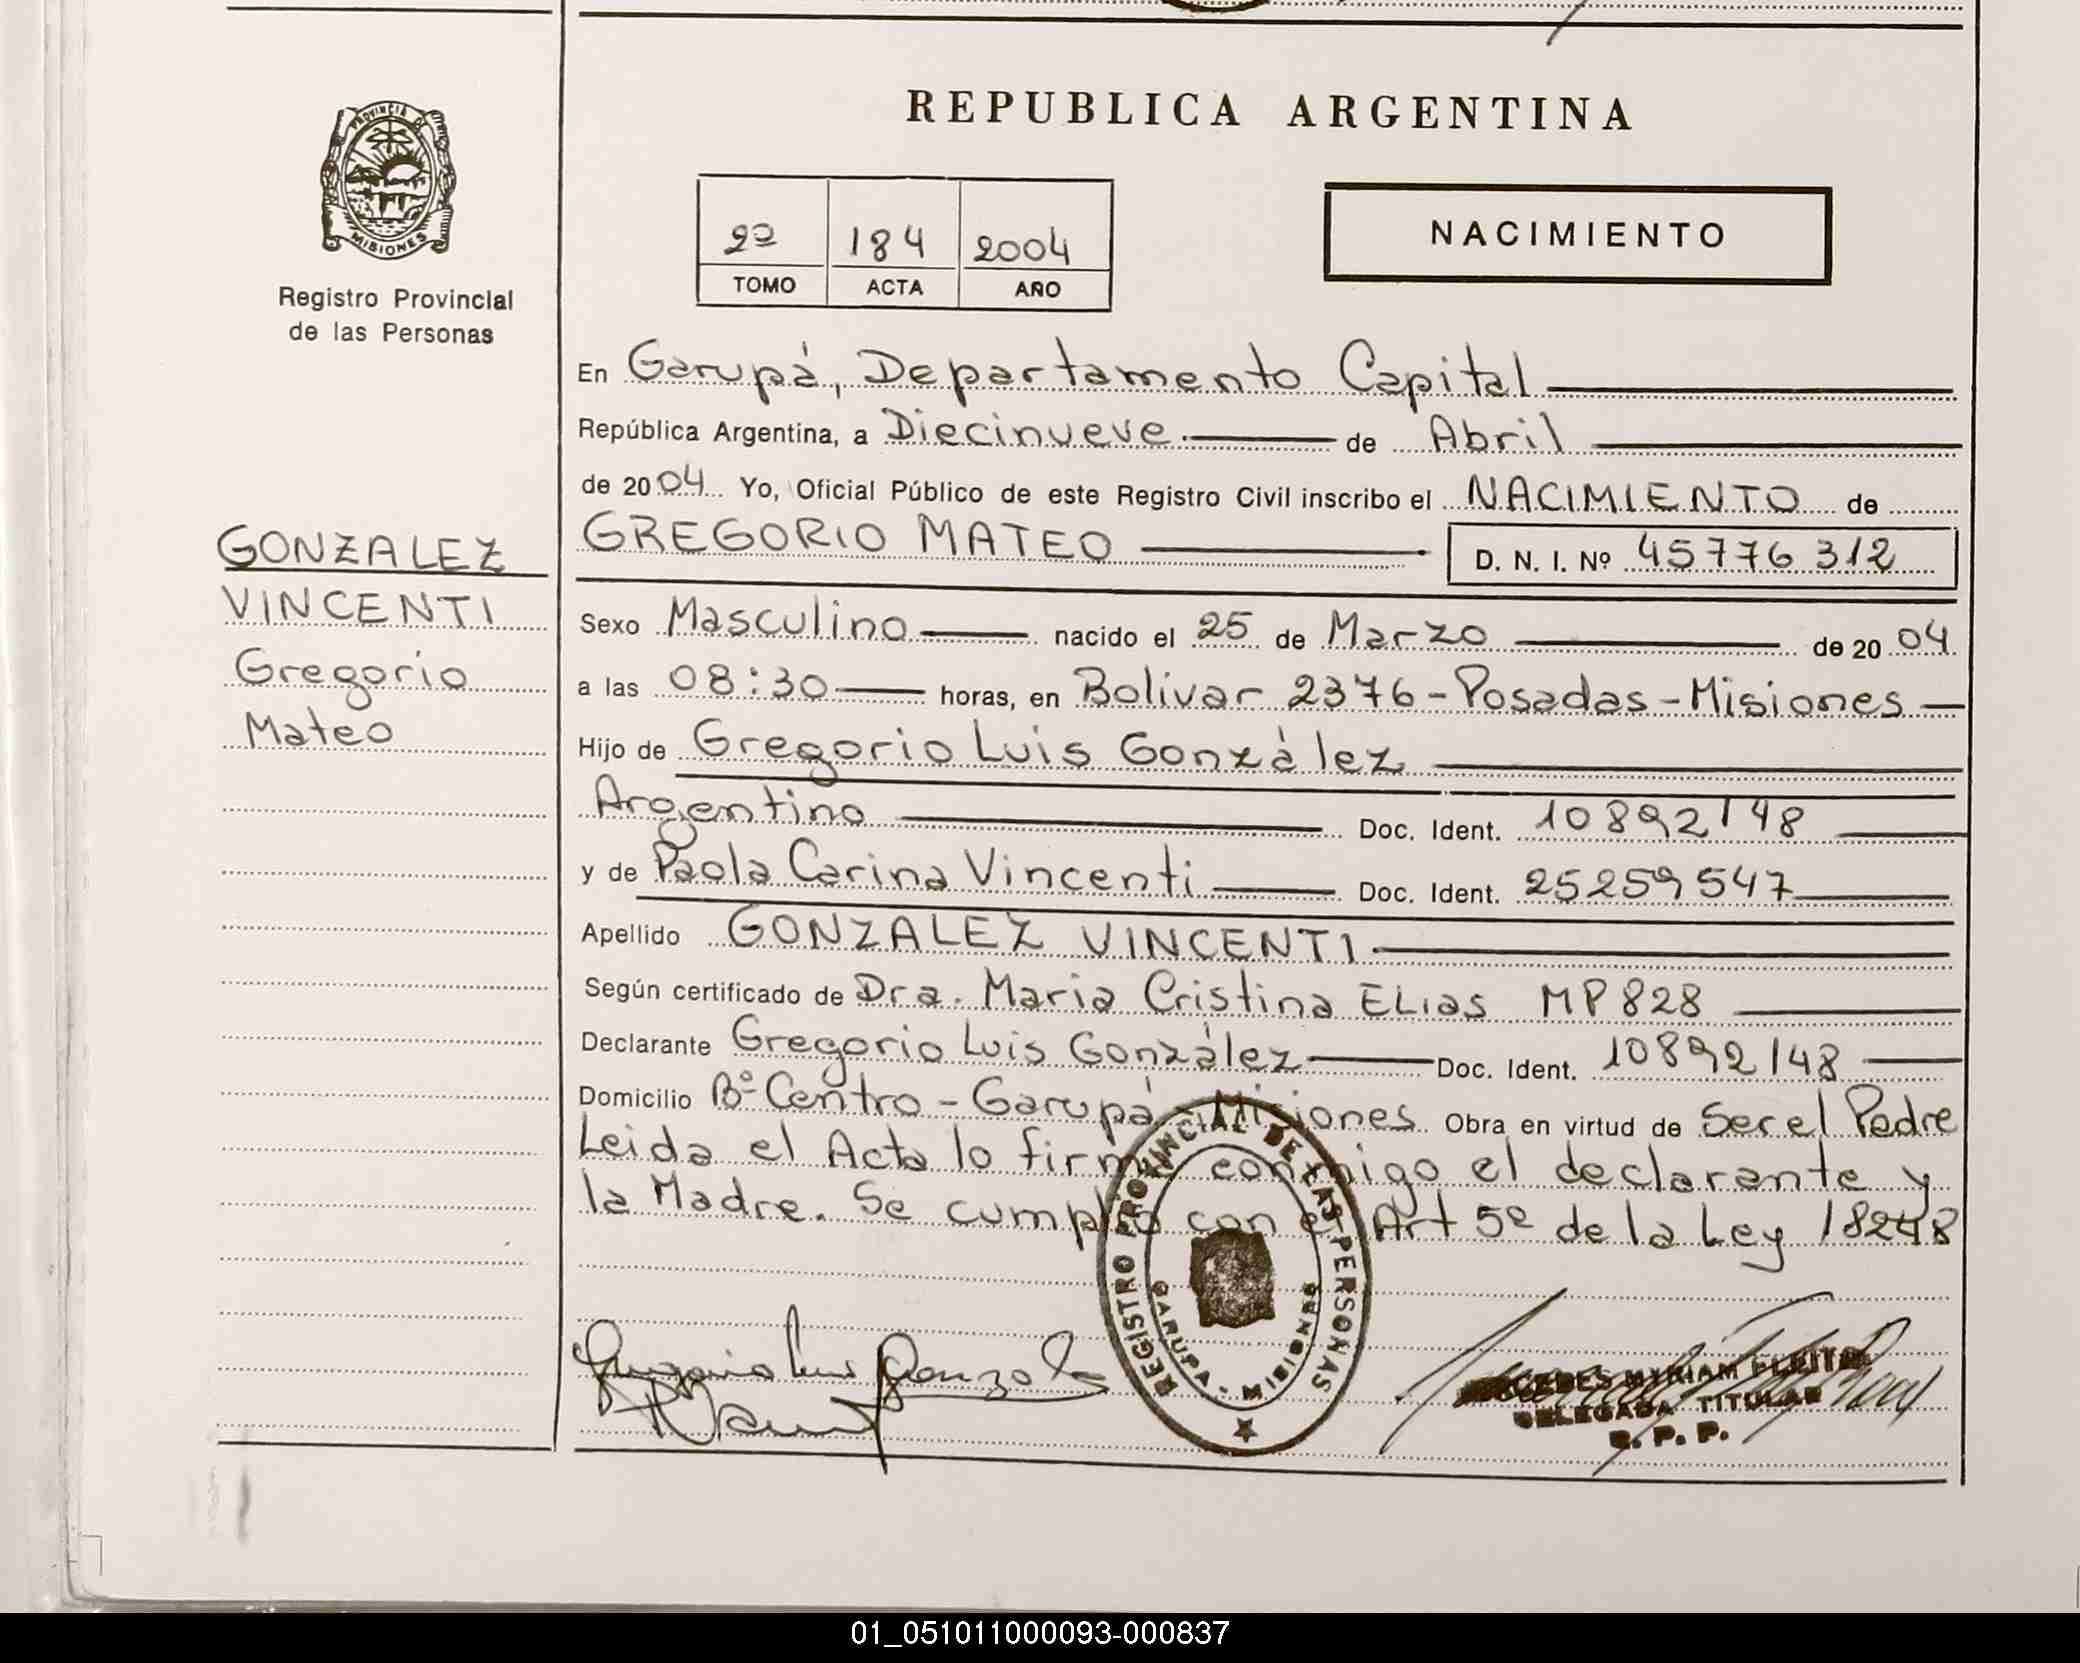 REPUBLICA ARGENTINA
PROVINCIA DE MISIONES
Registro Provincial
de las Personas
2º 184 2004
TOMO ACTA AÑO
NACIMIENTO
En Garupá, Departamento Capital
República Argentina, a Diecinueve de Abril
de 2004 Yo, Oficial Público de este Registro Civil inscribo el NACIMIENTO de
GREGORIO MATEO D. N. I. Nº 45776312
GONZALEZ
VINCENTI
Gregorio
Mateo
Sexo Masculino nacido el 25 de Marzo de 2004
a las 08:30 horas, en Bolivar 2376-Posadas-Misiones
Hijo de Gregorio Luis González
Argentino Doc. Ident. 10892148
y de Paola Carina Vincenti Doc. Ident. 25259547
Apellido GONZALEZ VINCENTI
Según certificado de Dra. Maria Cristina ELias MP828
Declarante Gregorio Luis González Doc. Ident. 10892148
Domicilio Bº Centro - Garupá - Misiones Obra en virtud de Ser el Padre
Leida el Acta lo firma conmigo el declarante y
la Madre. Se cumplió con el Art 5º de la Ley 18248
REGISTRO PROVINCIAL DE LAS PERSONAS
GARUPA - MISIONES
Gregorio Luis Gonzalez
MYRIAM
DELEGADA TITULAR
R. P. P.
01_051011000093-000837